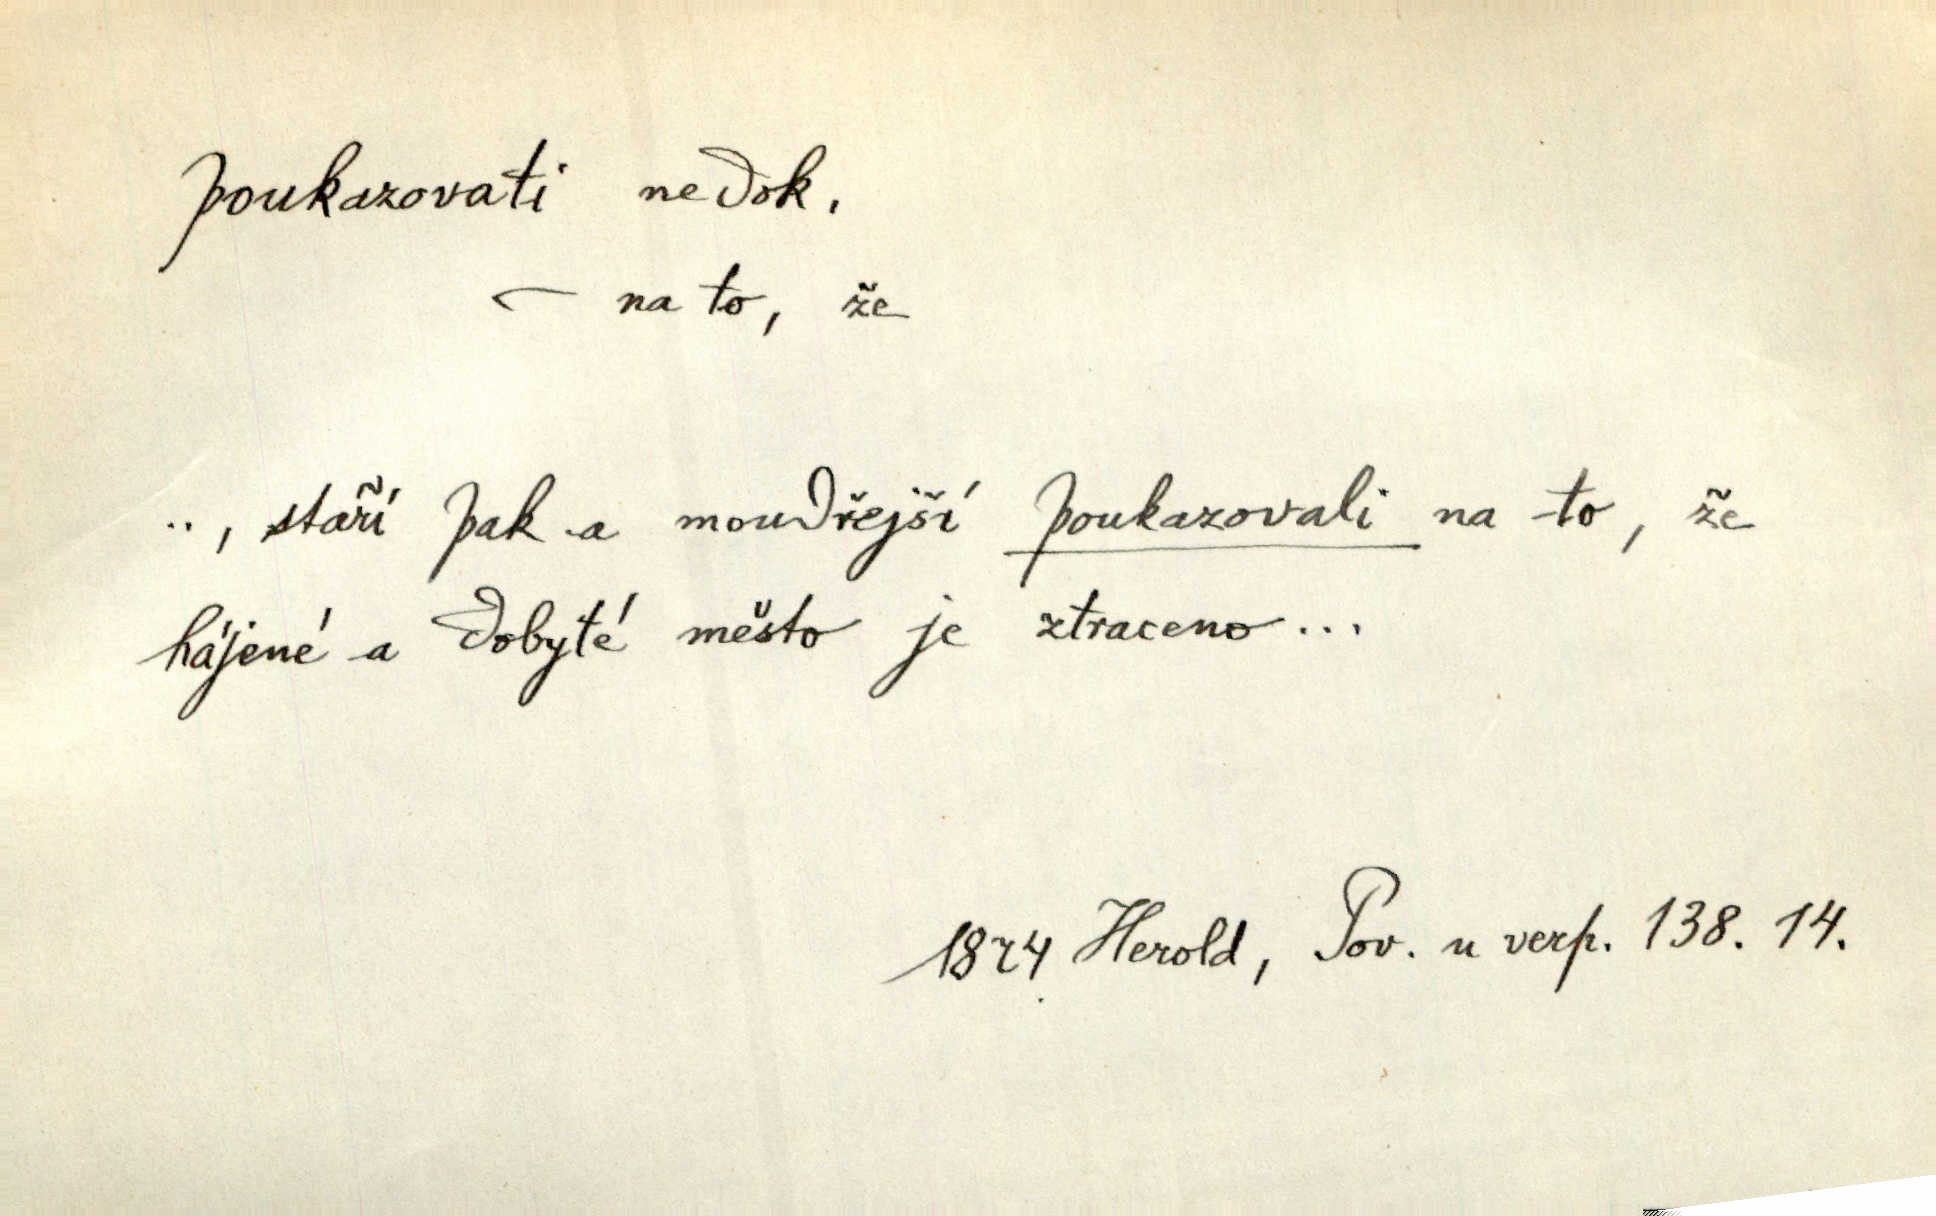 poukazovati nedok.
— na to, že
.., staří pak a moudřejší poukazovali na to, že
hájené a dobyté město je ztraceno...
1874 Herold, Pov. u verp. 138. 14.